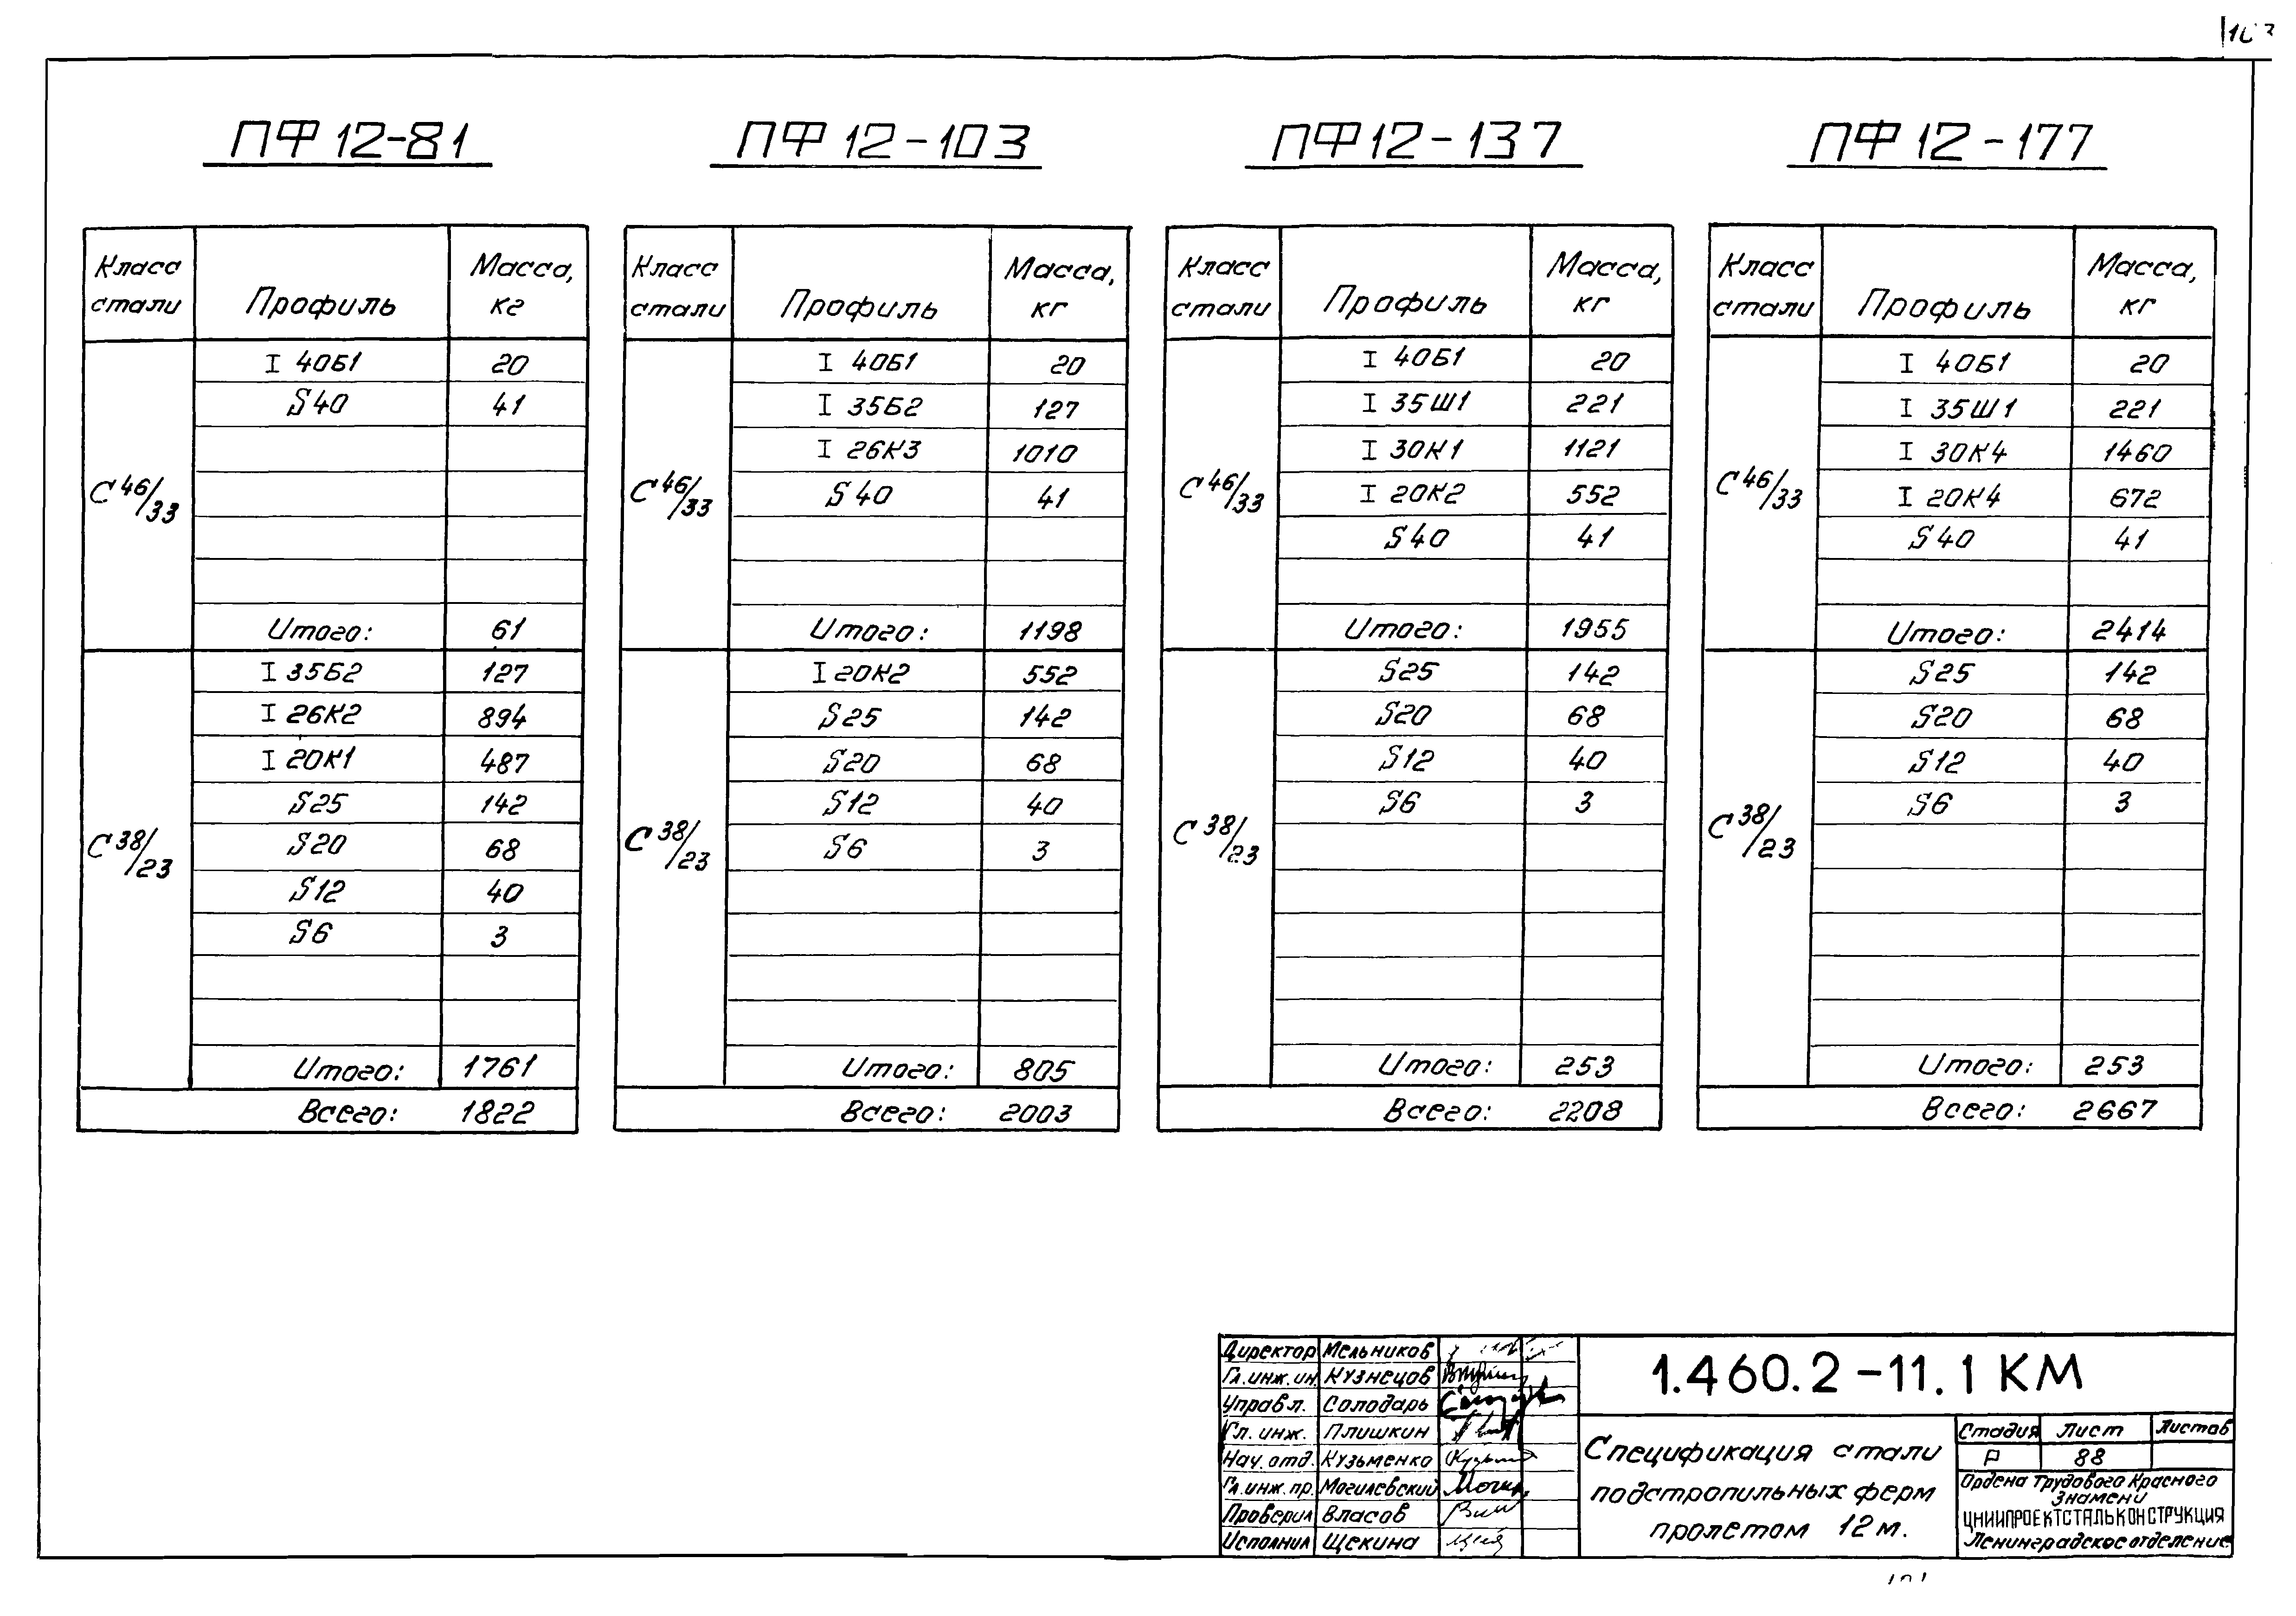 ПФ 12-81
Класс стали Профиль Масса, кг
С 46/33
I 40Б1 20
S 40 41
Итого: 61
С 38/23
I 35Б2 127
I 26К2 894
I 20К1 487
S25 142
S20 68
S12 40
S6 3
Итого: 1761
Всего: 1822
ПФ 12-103
Класс стали Профиль Масса, кг
С 46/33
I 40Б1 20
I 35Б2 127
I 26К3 1010
S 40 41
Итого: 1198
С 38/23
I 20К2 552
S25 142
S20 68
S12 40
S6 3
Итого: 805
Всего: 2003
ПФ 12-137
Класс стали Профиль Масса, кг
С 46/33
I 40Б1 20
I 35Ш1 221
I 30К1 1121
I 20К2 552
S40 41
Итого: 1955
С 38/23
S25 142
S20 68
S12 40
S6 3
Итого: 253
Всего: 2208
ПФ 12-177
Класс стали Профиль Масса, кг
С 46/33
I 40Б1 20
I 35Ш1 221
I 30К4 1460
I 20К4 672
S40 41
Итого: 2414
С 38/23
S25 142
S20 68
S12 40
S6 3
Итого: 253
Всего: 2667
Директор Мельников
Гл. инж. ин. Кузнецов
Управл. Солодарь
Гл. инж. Плишкин
Нач. отд. Кузьменко
Гл. инж. пр. Могилевский
Проверил Власов
Исполнил Щекина
1.460.2-11.1 КМ
Спецификация стали
подстропильных ферм
пролетом 12 м.
Стадия Лист Листов
Р 88
Ордена Трудового Красного
Знамени
ЦНИИПРОЕКТСТАЛЬКОНСТРУКЦИЯ
Ленинградское отделение